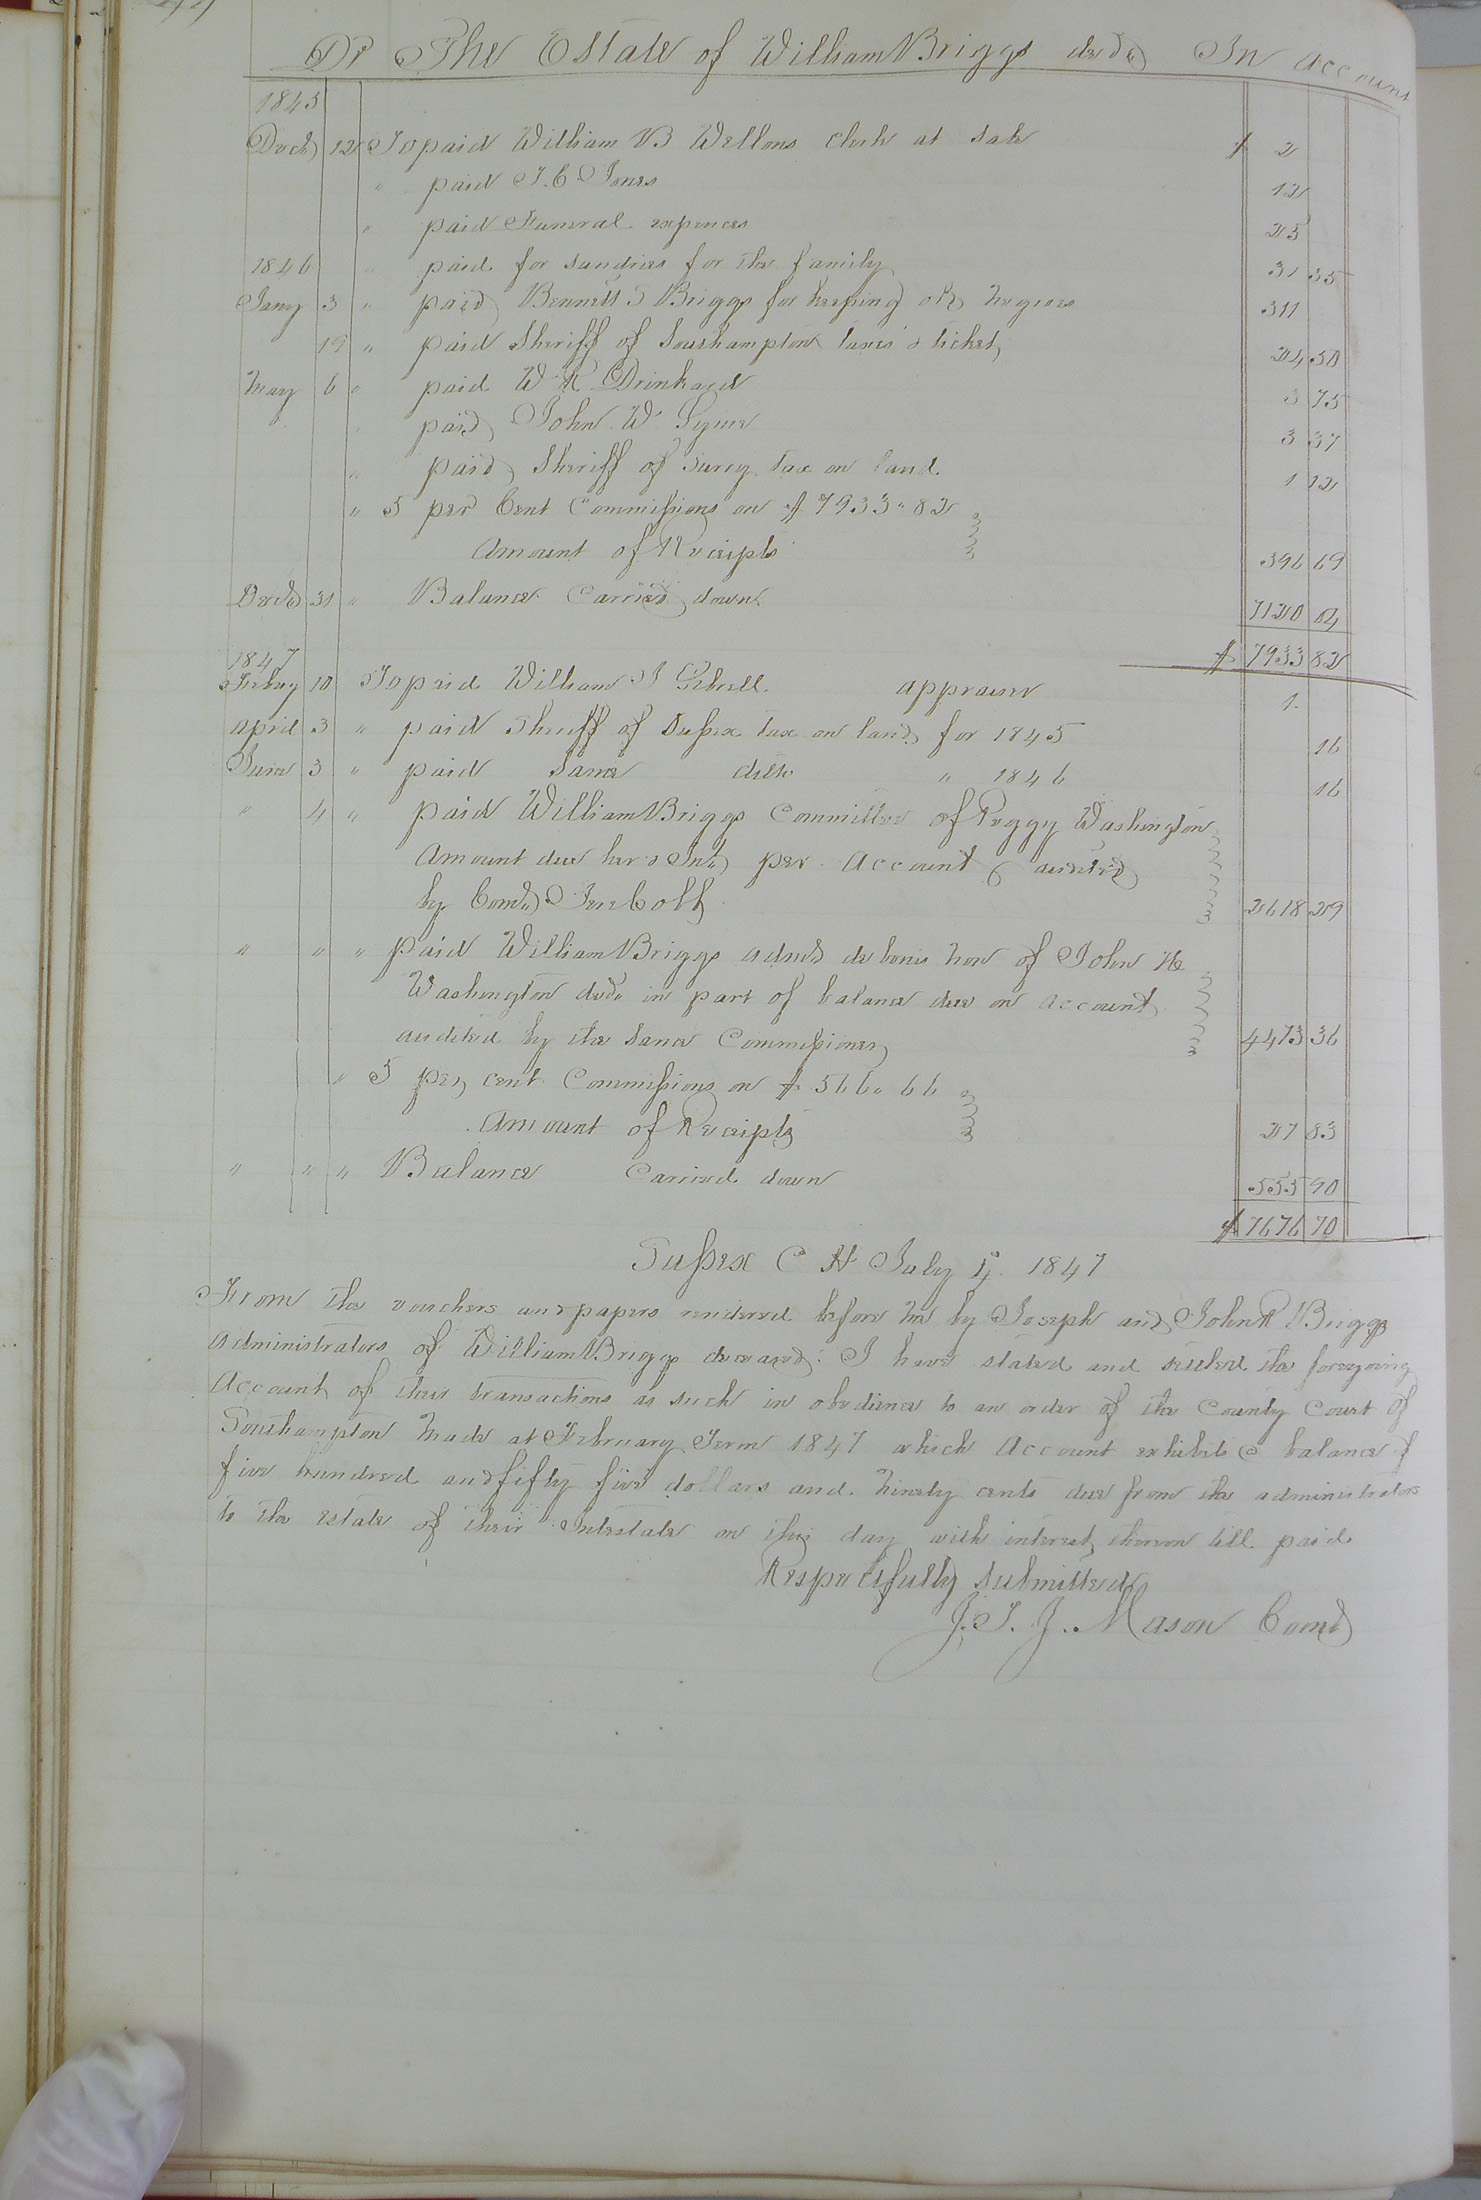 Dr The Estate of William Briggs decd In Account
1845
Decr 12 To paid William B Wellons clerk at sale $ 2
" paid J. E Jones 12
" paid Funeral expences 25
1846 " paid for sundries for the family 31 35
Jany 3 " paid Bennett Briggs for keeping old negroes 311
19 " paid Sheriff of Southampton taxes & tickets 24 50
May 6 " paid W. R. Drinkard 3 75
" paid John W Syme 3 37
" paid Sheriff of Surry tax on land 1 12
" 5 per Cent Commissions on $7933.82
Amount of Receipts 396 69
Decr 31 " Balance Carried down 7120 04
$ 7933 82
1847
Febuy 10 To paid William J appraiser 1.
April 3 " paid Sheriff of Sussex tax on land for 1845 16
June 3 " paid same ditto " 1846 16
" 4 " paid William Briggs Committee of Peggy Washington
Amount due her & Int. per Account audited
by Comr. 2618 29
" " " paid William Briggs admr de bonis non of John H
Washington decd. in part of balance due on account
audited by the same Commissioner 4473 36
" 5 per cent Commissions on $566.66
Amount of Receipts 27 83
" " " Balance Carried down 555 90
$ 7676 70
Sussex C H July 1847
From the vouchers and papers rendered before me by Joseph and John R Briggs
administrators of William Briggs deceased: I have stated and settled the foregoing
Account of their transactions as such in obedience to an order of the County Court of
Southampton made at February Term 1847 which Account exhibits a balance of
five hundred and fifty five dollars and ninety cents due from the administrators
to the estate of their Intestate on this day with interest thereon till paid
Respectfully submitted
J. T. J. Mason Comr